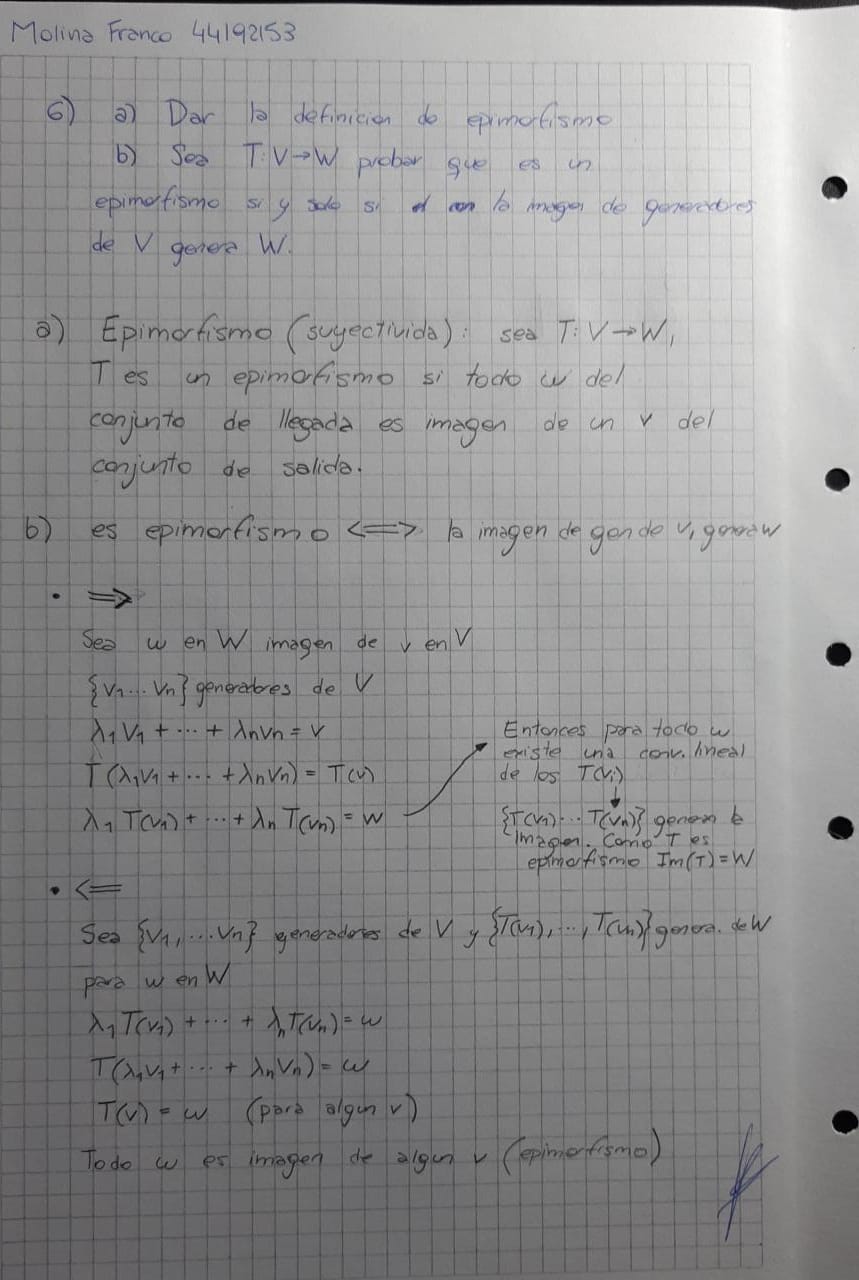 Molina Franco 44192153
6) a) Dar la definicion de epimorfismo
b) Sea T: V→W probar que es un
epimorfismo si y solo si la imagen de generadores
de V genera W.
a) Epimorfismo (suyectivida): sea T: V→W,
T es un epimorfismo si todo w del
conjunto de llegada es imagen de un v del
conjunto de salida.
b) es epimorfismo <=> la imagen de gen de V, genera W
• =>
Sea w en W imagen de v en V
{v1 ... vn} generadores de V
λ1 v1 + ... + λn vn = v
T(λ1v1 + ... + λnvn) = T(v)
λ1 T(v1) + ... + λn T(vn) = w
Entonces para todo w
existe una conv. lineal
de los T(vi)
{T(v1) ... T(vn)} generan la
Imagen. Como T es
epimorfismo Im(T) = W
• <=
Sea {v1, ... vn} generadores de V y {T(v1), ..., T(vn)} genera. de W
para w en W
λ1 T(v1) + ... + λn T(vn) = w
T(λ1v1 + ... + λnvn) = w
T(v) = w (para algun v)
Todo w es imagen de algun v (epimorfismo)